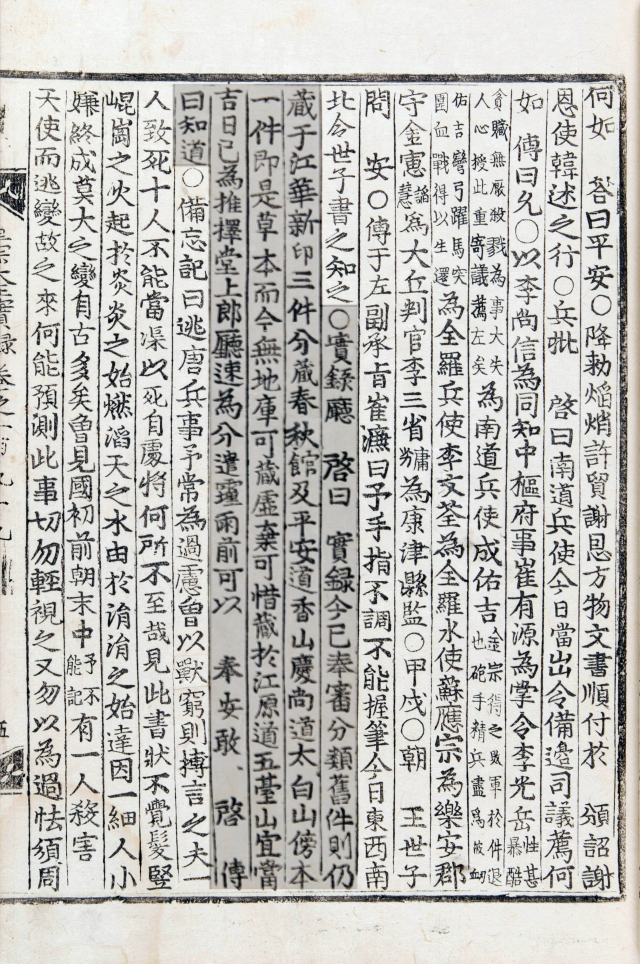 何如 荅曰平安○降勑焰焇許貿謝恩方物文書順付於 頒詔謝
恩使韓述之行○兵批 啓曰南道兵使今日當出令備邊司議薦何
如 傳曰允○以李尚信為同知中樞府事崔有源為掌令李光岳性甚暴酷
貪贓無厭殺戮為事大失人心授此重寄議薦左矣為南道兵使成佑吉金宗得之敗軍於件退也砲手精兵盡為被刼
佑吉彎弓躍馬突圍血戰得以生還為全羅兵使李文荃為全羅水使蘇應宗為樂安郡
守金憲諂慧為大丘判官李三省為康津縣監○甲戌○朝 王世子
問 安○傳于左副承旨崔濂曰予手指不調不能握筆今日東西南
北令世子書之知之○實錄廳 啓曰 實錄今已奉審分類舊件則仍
藏于江華新印三件分藏春秋館及平安道香山慶尚道太白山傍本
一件即是草本而今無地庫可藏虛棄可惜藏於江原道五臺山宜當
吉日已為推擇堂上郎廳速為分遣霾雨前可以 奉安敢 啓 傳
曰知道○備忘記曰逃唐兵事予常為過慮曾以獸窮則搏言之夫一
人致死十人不能當渠以死自處將何所不至哉見此書狀不覺髮竪
崐崗之火起於炎炎之始燃滔天之水由於涓涓之始達因一細人小
嫌終成莫大之變有古多矣曾見國初前朝末中予不能記有一人殺害
天使而逃變故之來何能預測此事切勿輕視之又勿以為過怯須周
五